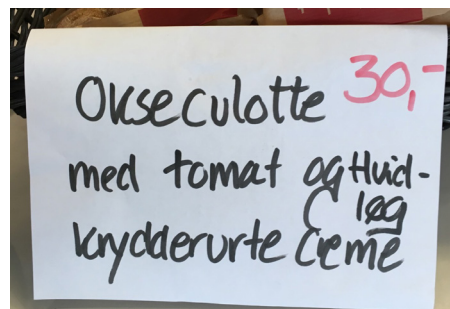 Okseculotte 30,-
med tomat og Hvid-
løg
krydderurte Creme